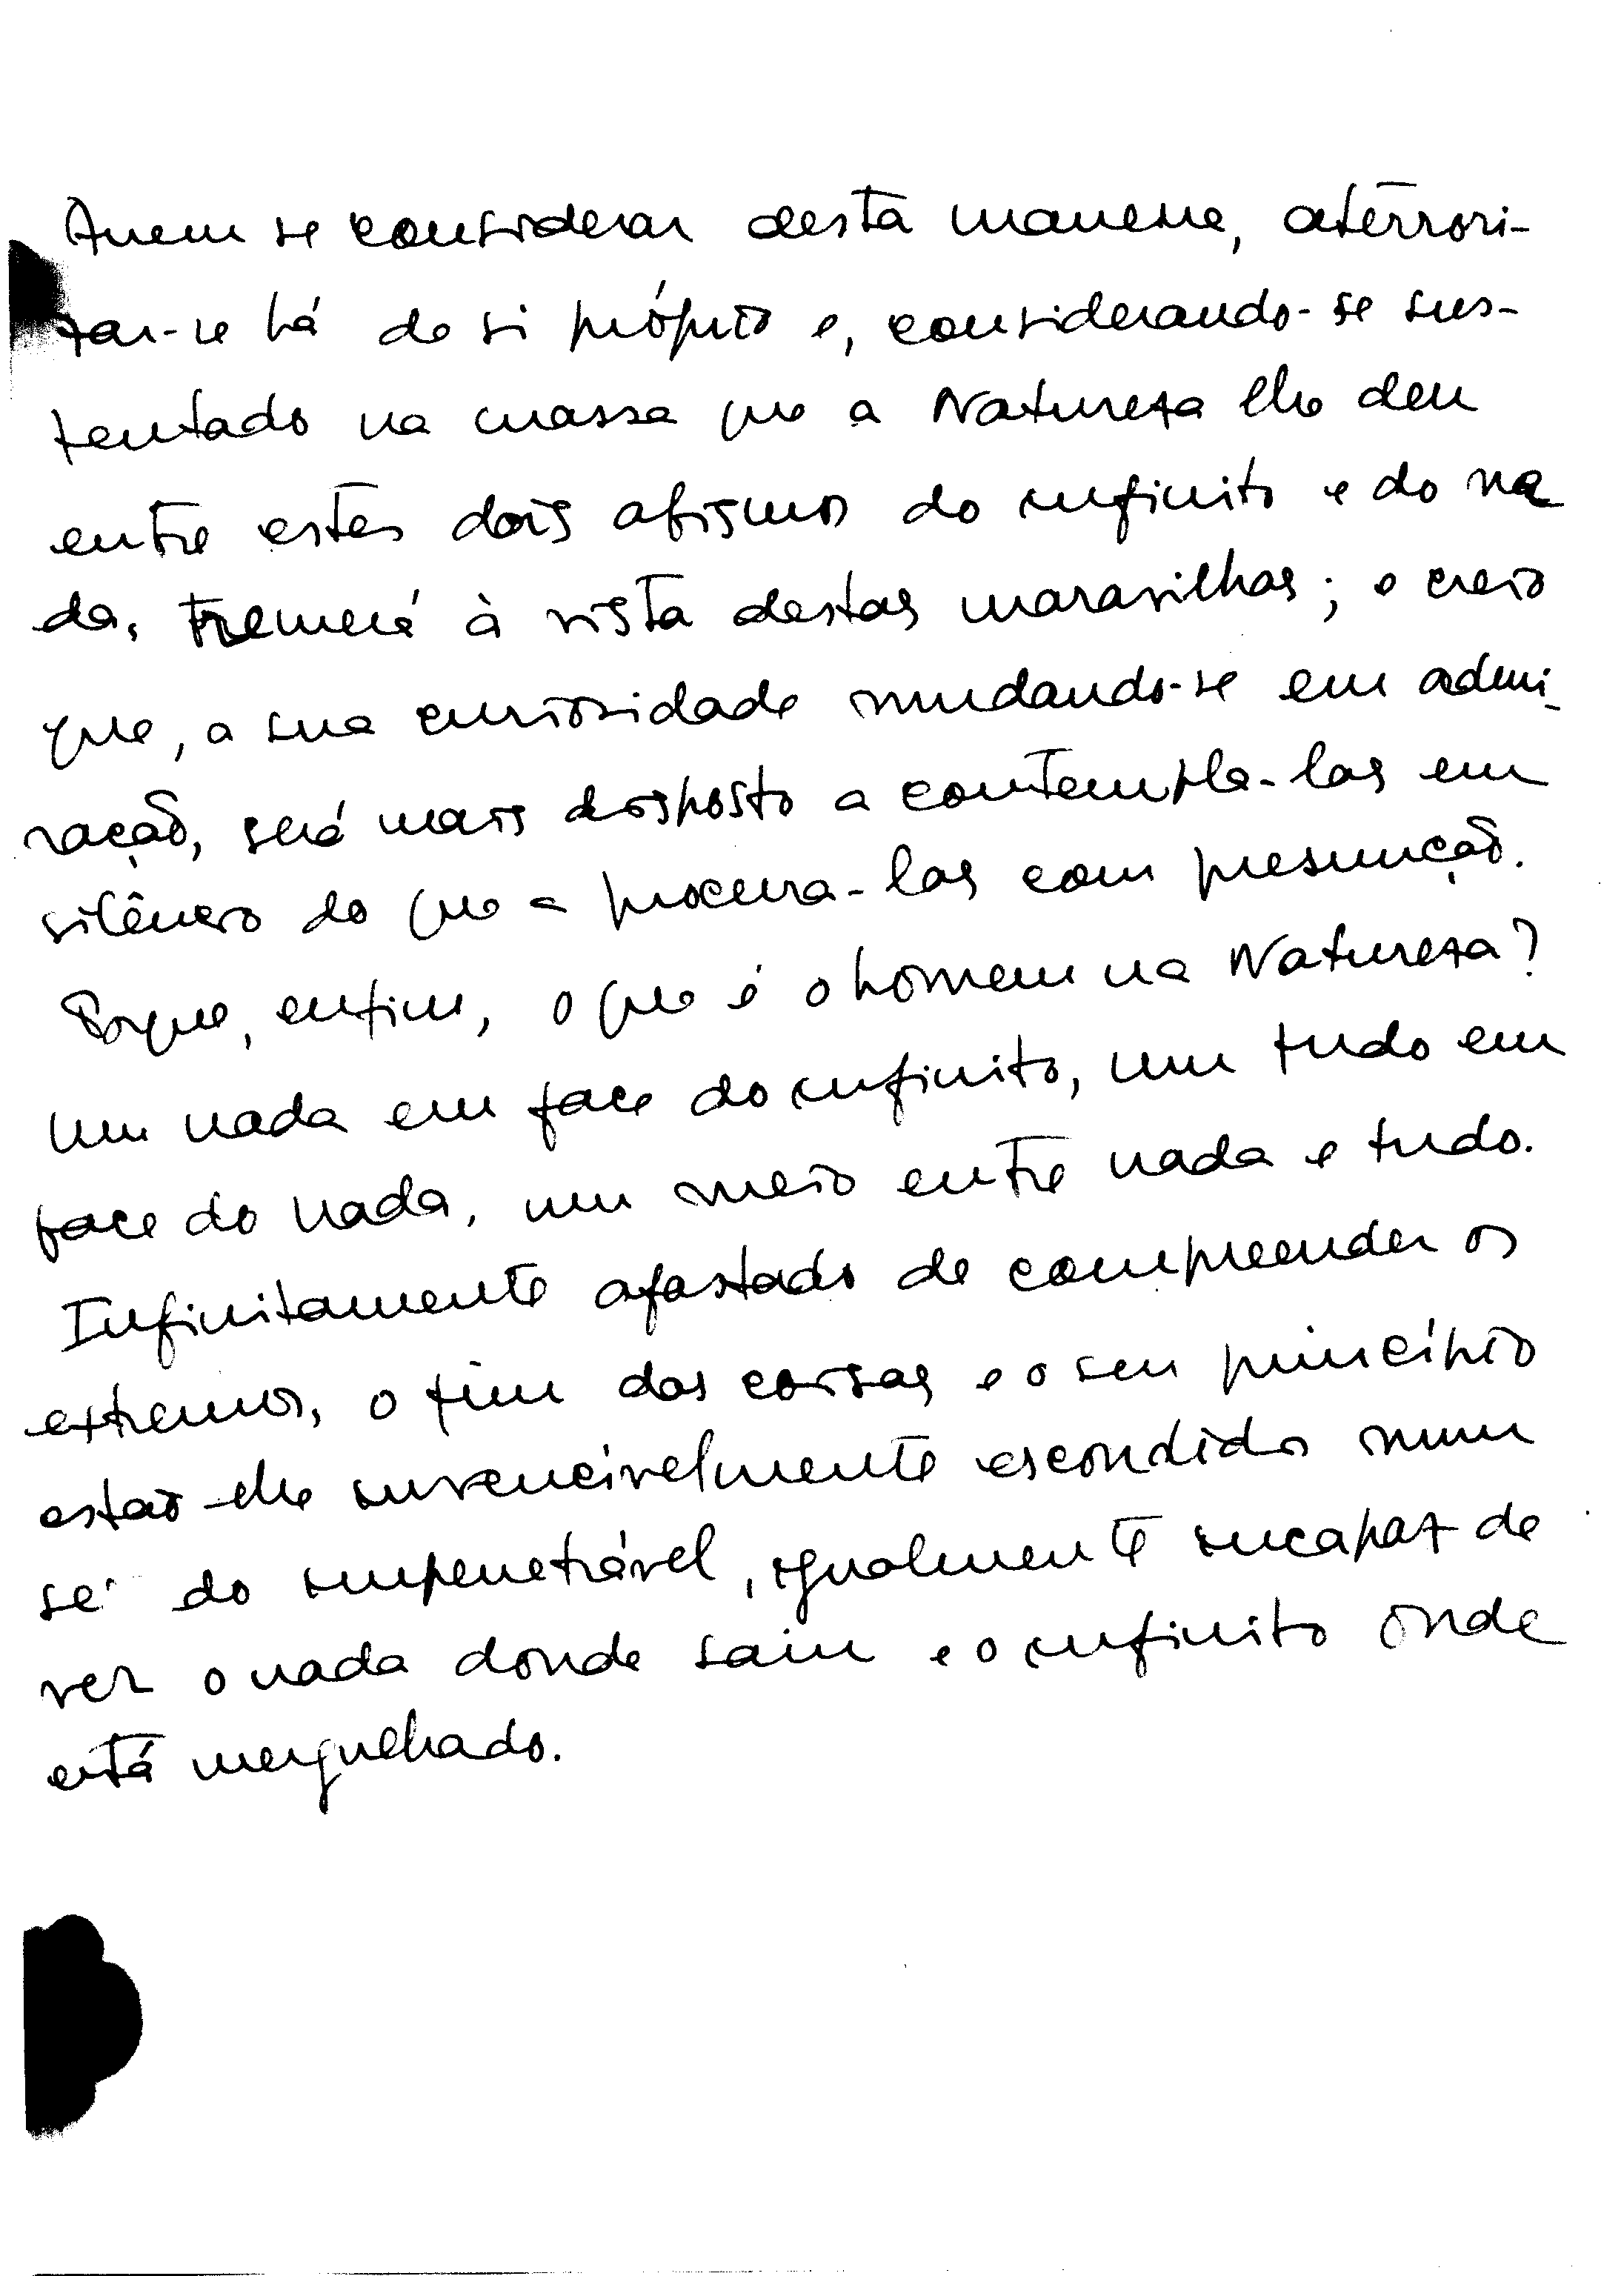 Quem se considerar desta maneira, aterrori-
zar-se há de si próprio e, considerando-se sus-
tentado na massa que a Natureza lhe deu
entre estes dois abismos do infinito e do na
da, tremerá à vista destas maravilhas; e creio
que, a sua curiosidade mudando-se em admi-
ração, será mais disposto a contempla-las em
silêncio do que a procura-las com presunção.
Porque, enfim, o que é o homem na Natureza?
Um nada em face do infinito, um tudo em
face do nada, um meio entre nada e tudo.
Infinitamente afastado de compreender os
extremos, o fim das coisas e o seu princípio
estão-lhe invencivelmente escondidos num
se do impenetrável, igualmente incapaz de
ver o nada donde saiu e o infinito onde
está mergulhado.